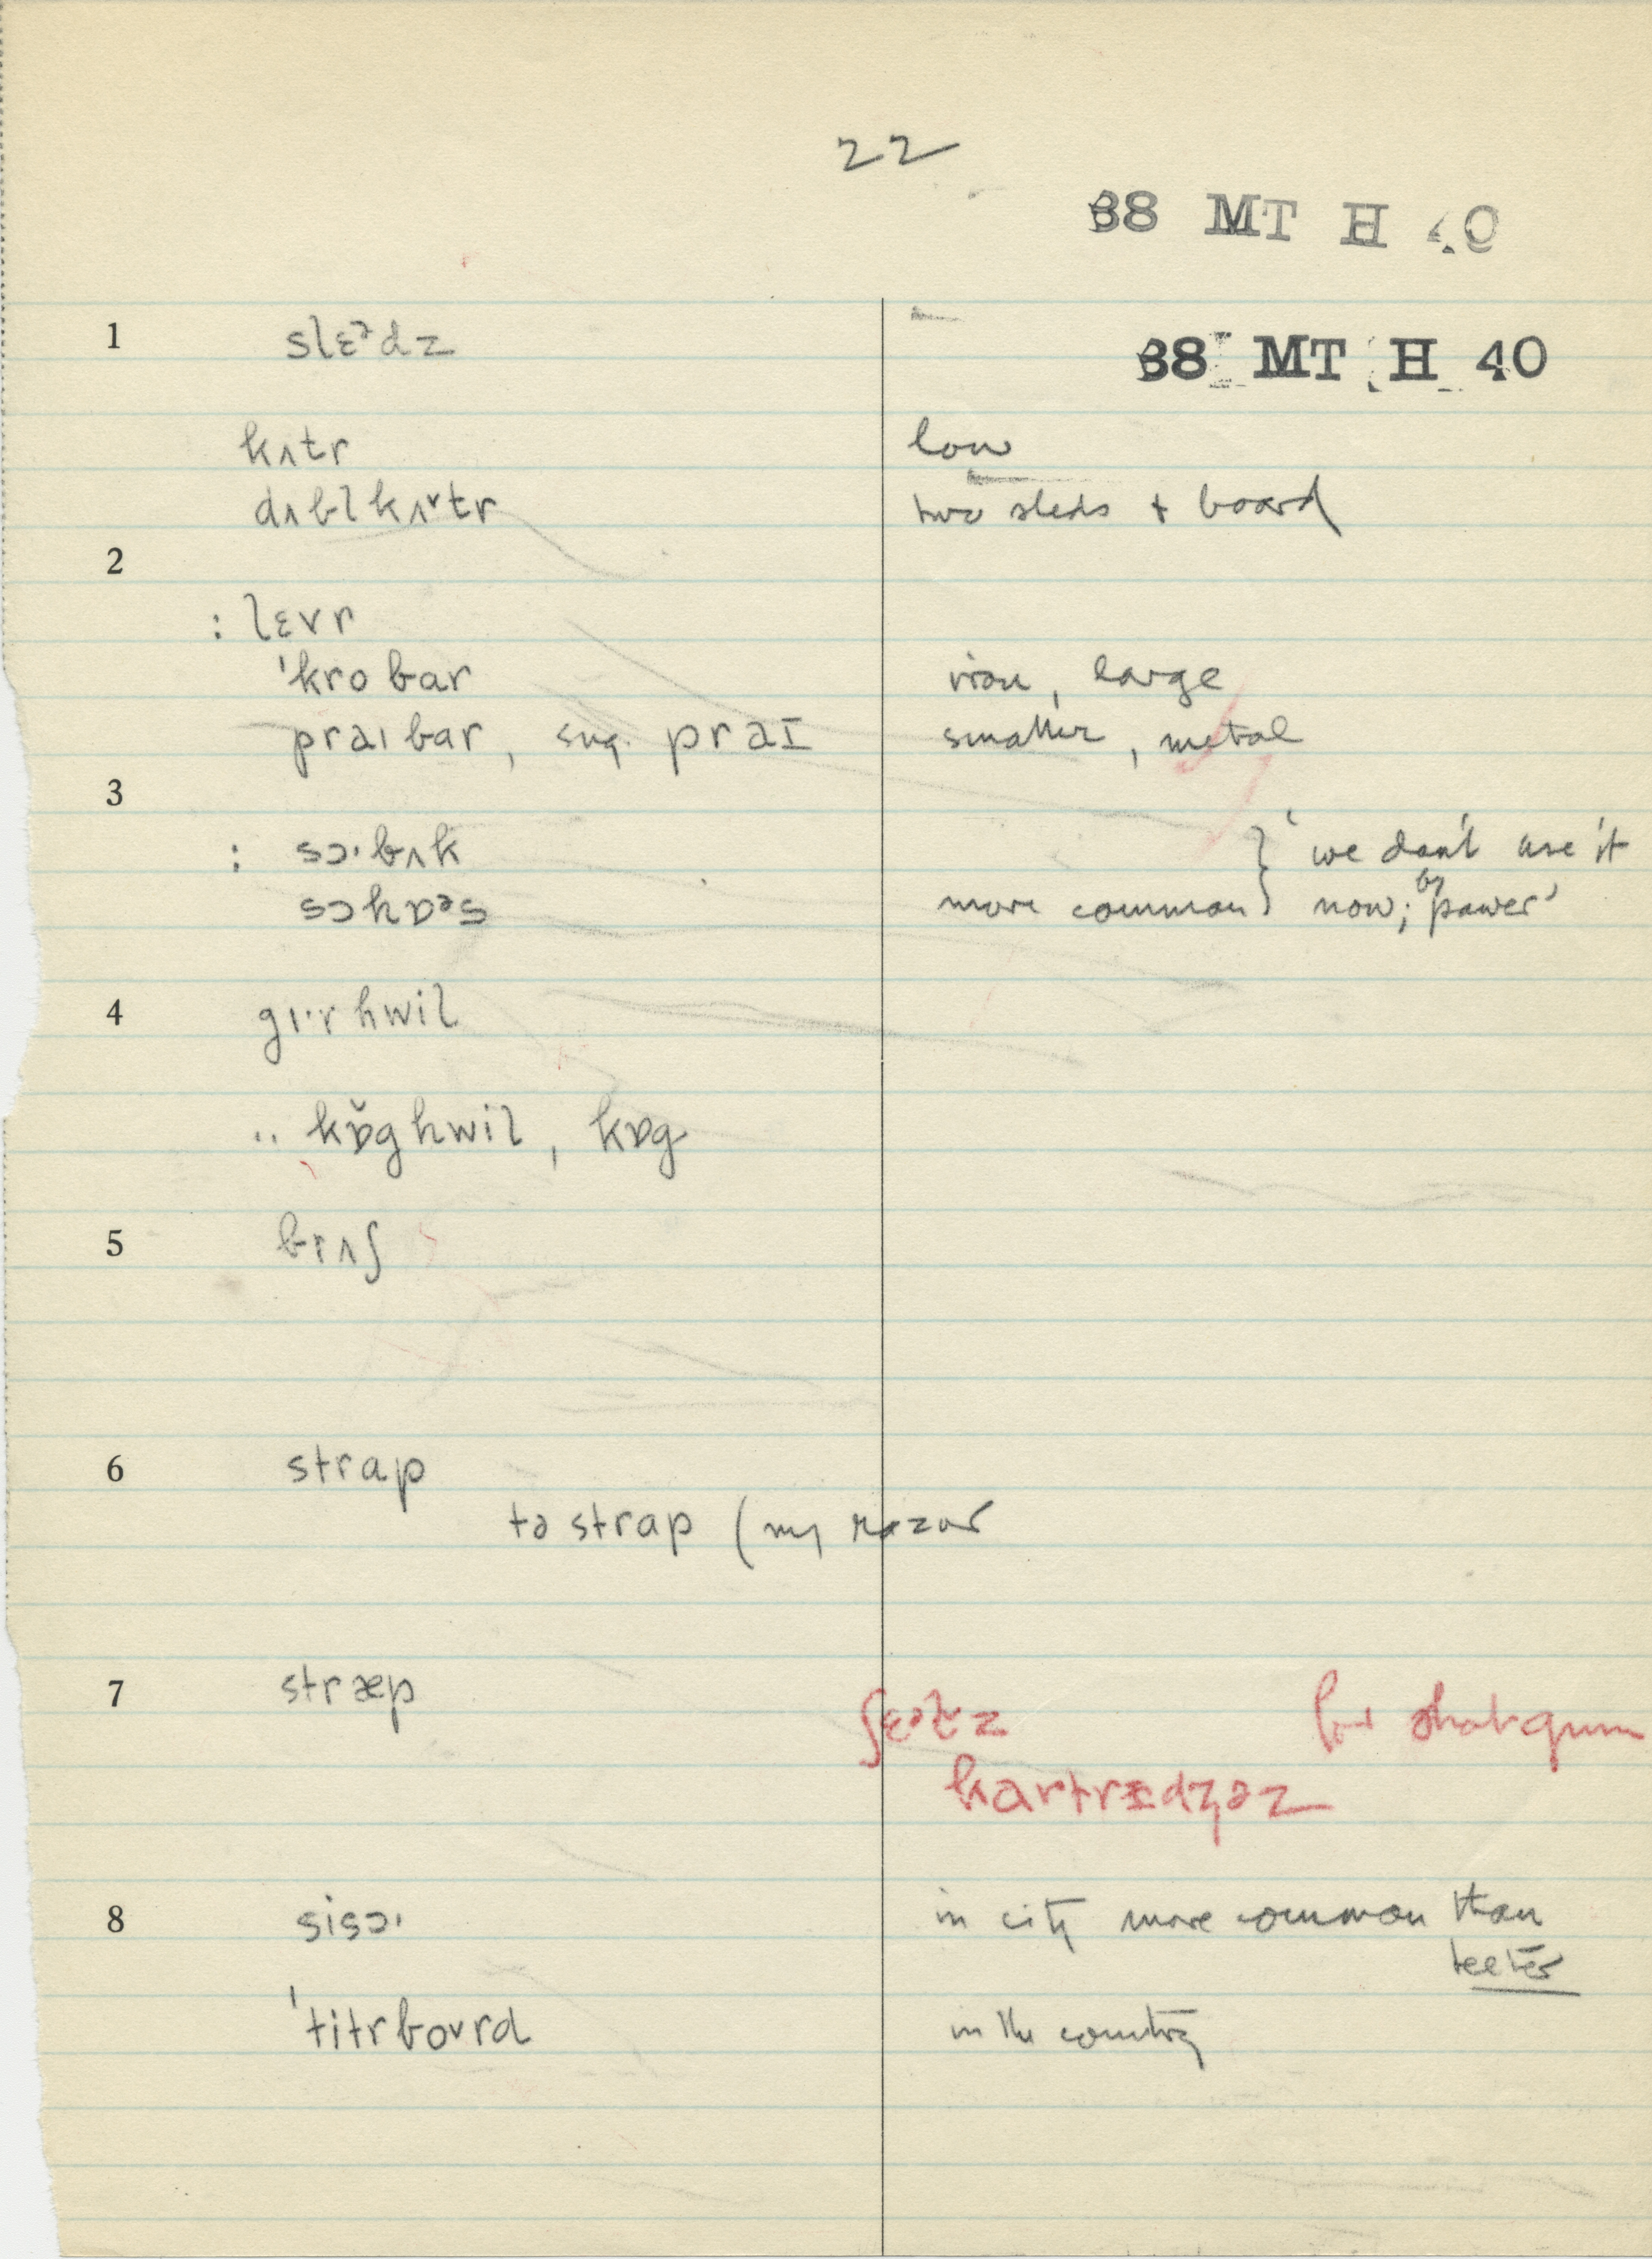 22
38 MT H 40
1 slɛᵊdz 38 MT H 40
kʌtr low
dʌbl kʌ˅tr two sleds + board
2
: lɛvr
'kro bar iron, large
praɪ bar, sug. praɪ smaller, metal
3
: sɔ·bʌk } 'we don't use it
sɔhɒᵊs more common } now; by power'
4 gɪ·r hwil
.. kɒ̌g hwil, kɒg
5 brʌʃ
6 strap
tə strap (my razor
7 stræp ʃɛᵊlz for shotgun
kartrɪdʒəz
8 sisɔ· in city more common than
teeter
'titrbo˅rd in the country